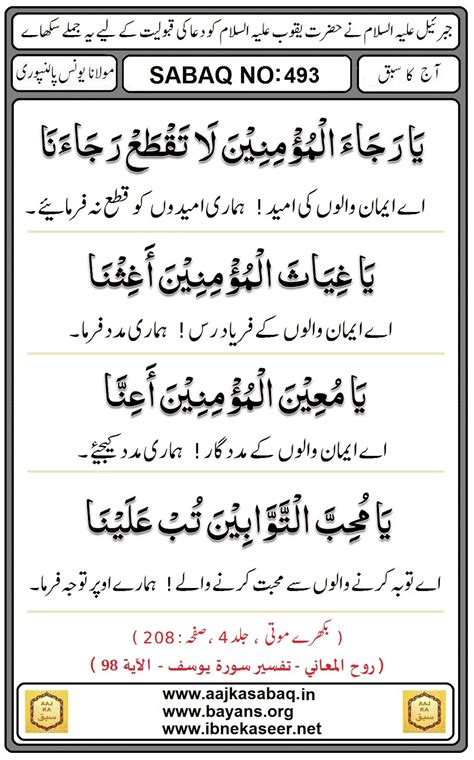 جبرئیل علیہ السلام نے حضرت یعقوب علیہ السلام کو دعا کی قبولیت کے لیے یہ جملے سکھائے
آج کا سبق SABAQ NO:493 مولانا یونس پالنپوری
يَا رَجَاءَ الْمُؤْمِنِيْنَ لَا تَقْطَعْ رَجَاءَنَا
اے ایمان والوں کی امید ! ہماری امیدوں کو قطع نہ فرمائیے۔
يَا غِيَاثَ الْمُؤْمِنِيْنَ أَغِثْنَا
اے ایمان والوں کے فریاد رس ! ہماری مدد فرما۔
يَا مُعِيْنَ الْمُؤْمِنِيْنَ أَعِنَّا
اے ایمان والوں کے مدد گار ! ہماری مدد کیجیئے۔
يَا مُحِبَّ التَّوَّابِيْنَ تُبْ عَلَيْنَا
اے توبہ کرنے والوں سے محبت کرنے والے ! ہمارے اوپر توجہ فرما۔
( بکھرے موتی ، جلد 4 ،صفحہ:208 )
( روح المعاني - تفسير سورة يوسف - الآية 98 )
AAJ KA سبق
www.aajkasabaq.in
www.bayans.org
www.ibnekaseer.net
AAJ KA سبق